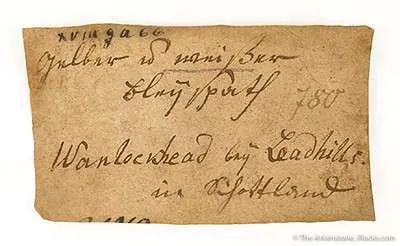 XVIII g a 66
Gelber u weißer
Bleÿspath
780
Wanlockhead beÿ Leadhills.
in Schottland
© The Arkenstone, iRocks.com